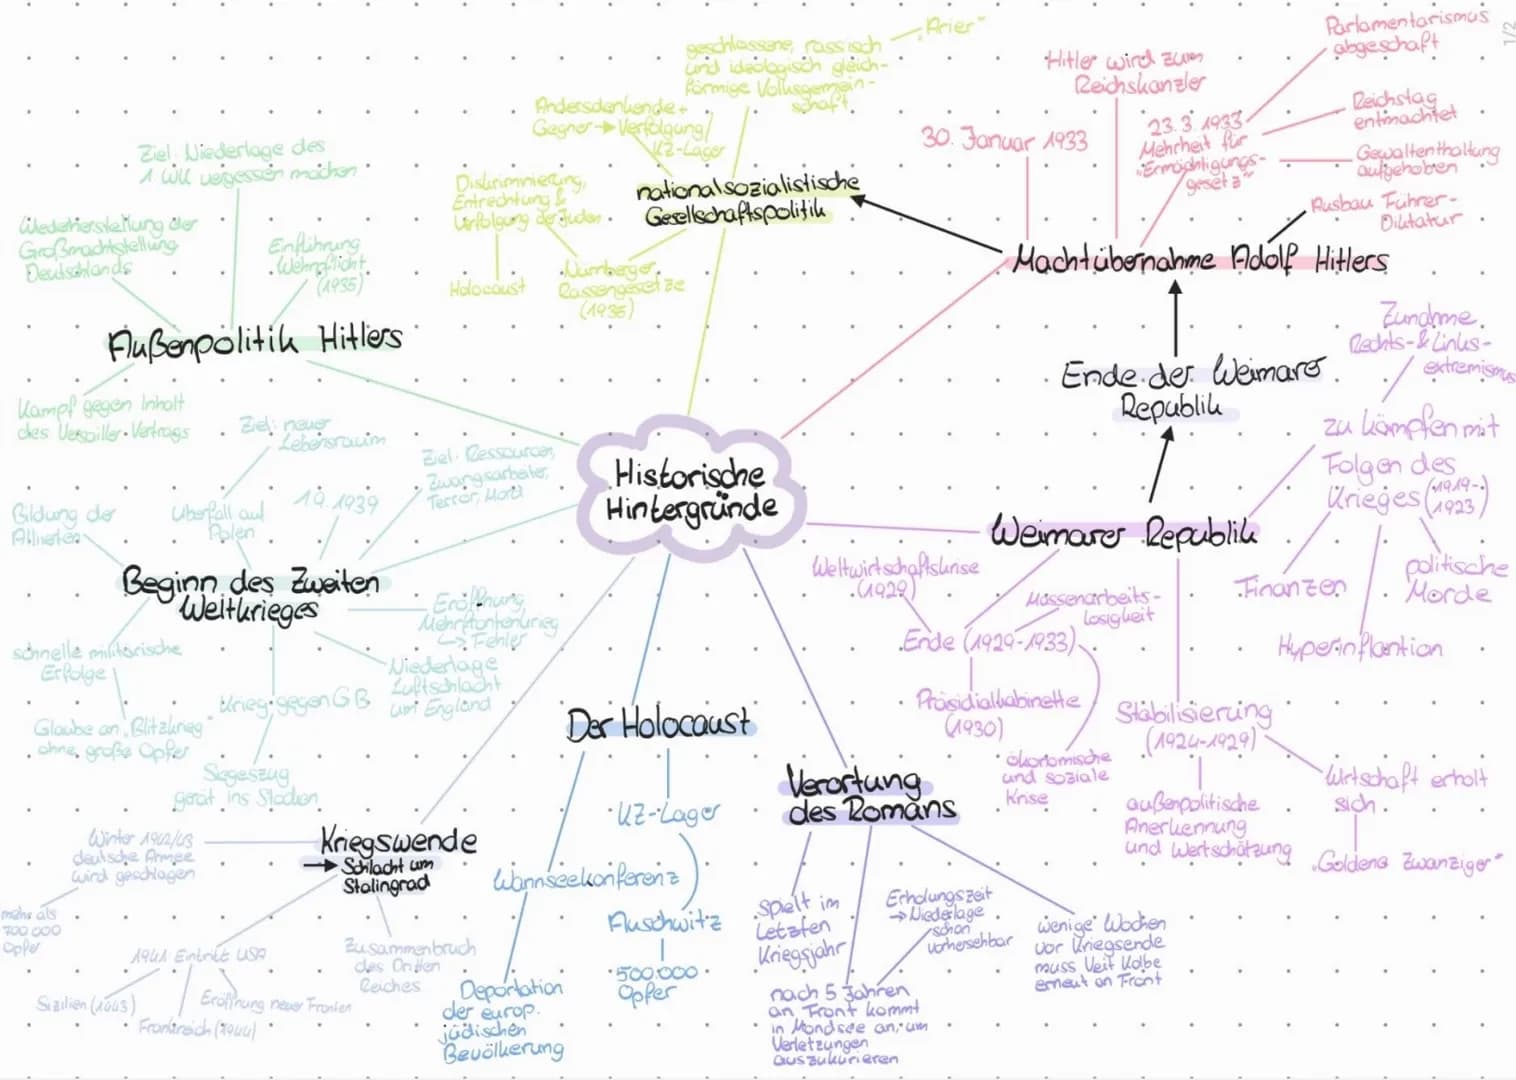 1/2
Historische
Hintergründe
Machtübernahme Adolf Hitlers
30. Januar 1933
Hitler wird zum
Reichskanzler
23.3.1933
Mehrheit für
„Ermächtigungs-
gesetz"
Parlamentarismus
abgeschaft
Reichstag
entmachtet
Gewaltenthaltung
aufgehoben
Ausbau Führer-
Diktatur
nationalsozialistische
Gesellschaftspolitik
geschlossene, rassisch
und ideologisch gleich-
förmige Volksgemein-
schaft
„Arier"
Andersdenkende +
Gegner → Verfolgung/
KZ-Lager
Diskriminierung,
Entrechtung &
Verfolgung der Juden
Holocaust
Nürnberger
Rassengesetze
(1935)
Außenpolitik Hitlers
Ziel: Niederlage des
1 WK vergessen machen
Wiederherstellung der
Großmachtstellung
Deutschlands
Einführung
Wehrpflicht
(1935)
Kampf gegen Inhalt
des Versailler Vertrags
Beginn des Zweiten
Weltkrieges
Ziel: neuer
Lebensraum
Überfall auf
Polen
1.9.1939
Ziel: Ressourcen,
Zwangsarbeiter,
Terror, Mord
Bildung der
Alliierten
schnelle militärische
Erfolge
Glaube an „Blitzkrieg"
ohne große Opfer
Krieg gegen GB
Siegeszug
gerät ins Stocken
Eröffnung
Mehrfrontenkrieg
↳ Fehler
Niederlage
Luftschlacht
um England
Kriegswende
→ Schlacht um
Stalingrad
Winter 1942/43
deutsche Armee
wird geschlagen
mehr als
700 000
Opfer
1941 Eintritt USA
Sizilien (1943)
Frankreich (1944)
Eröffnung neuer Fronten
Zusammenbruch
des Dritten
Reiches
Der Holocaust
KZ-Lager
Wannseekonferenz
Auschwitz
500.000
Opfer
Deportation
der europ.
jüdischen
Bevölkerung
Verortung
des Romans
spielt im
Letzten
Kriegsjahr
nach 5 Jahren
an Front kommt
in Mondsee an, um
Verletzungen
auszukurieren
Erholungszeit
→ Niederlage
schon
vorhersehbar
wenige Wochen
vor Kriegsende
muss Veit Kolbe
erneut an Front
Ende der Weimarer
Republik
Weimarer Republik
zu kämpfen mit
Folgen des
Krieges (1919-
1923)
Zunahme
Rechts- & Links-
extremismus
Finanzen
Hyperinflantion
politische
Morde
Stabilisierung
(1924-1929)
außenpolitische
Anerkennung
und Wertschätzung
Wirtschaft erholt
sich
„Goldene Zwanziger"
Ende (1929-1933)
Weltwirtschaftskrise
(1929)
Massenarbeits-
losigkeit
Präsidialkabinette
(1930)
ökonomische
und soziale
Krise